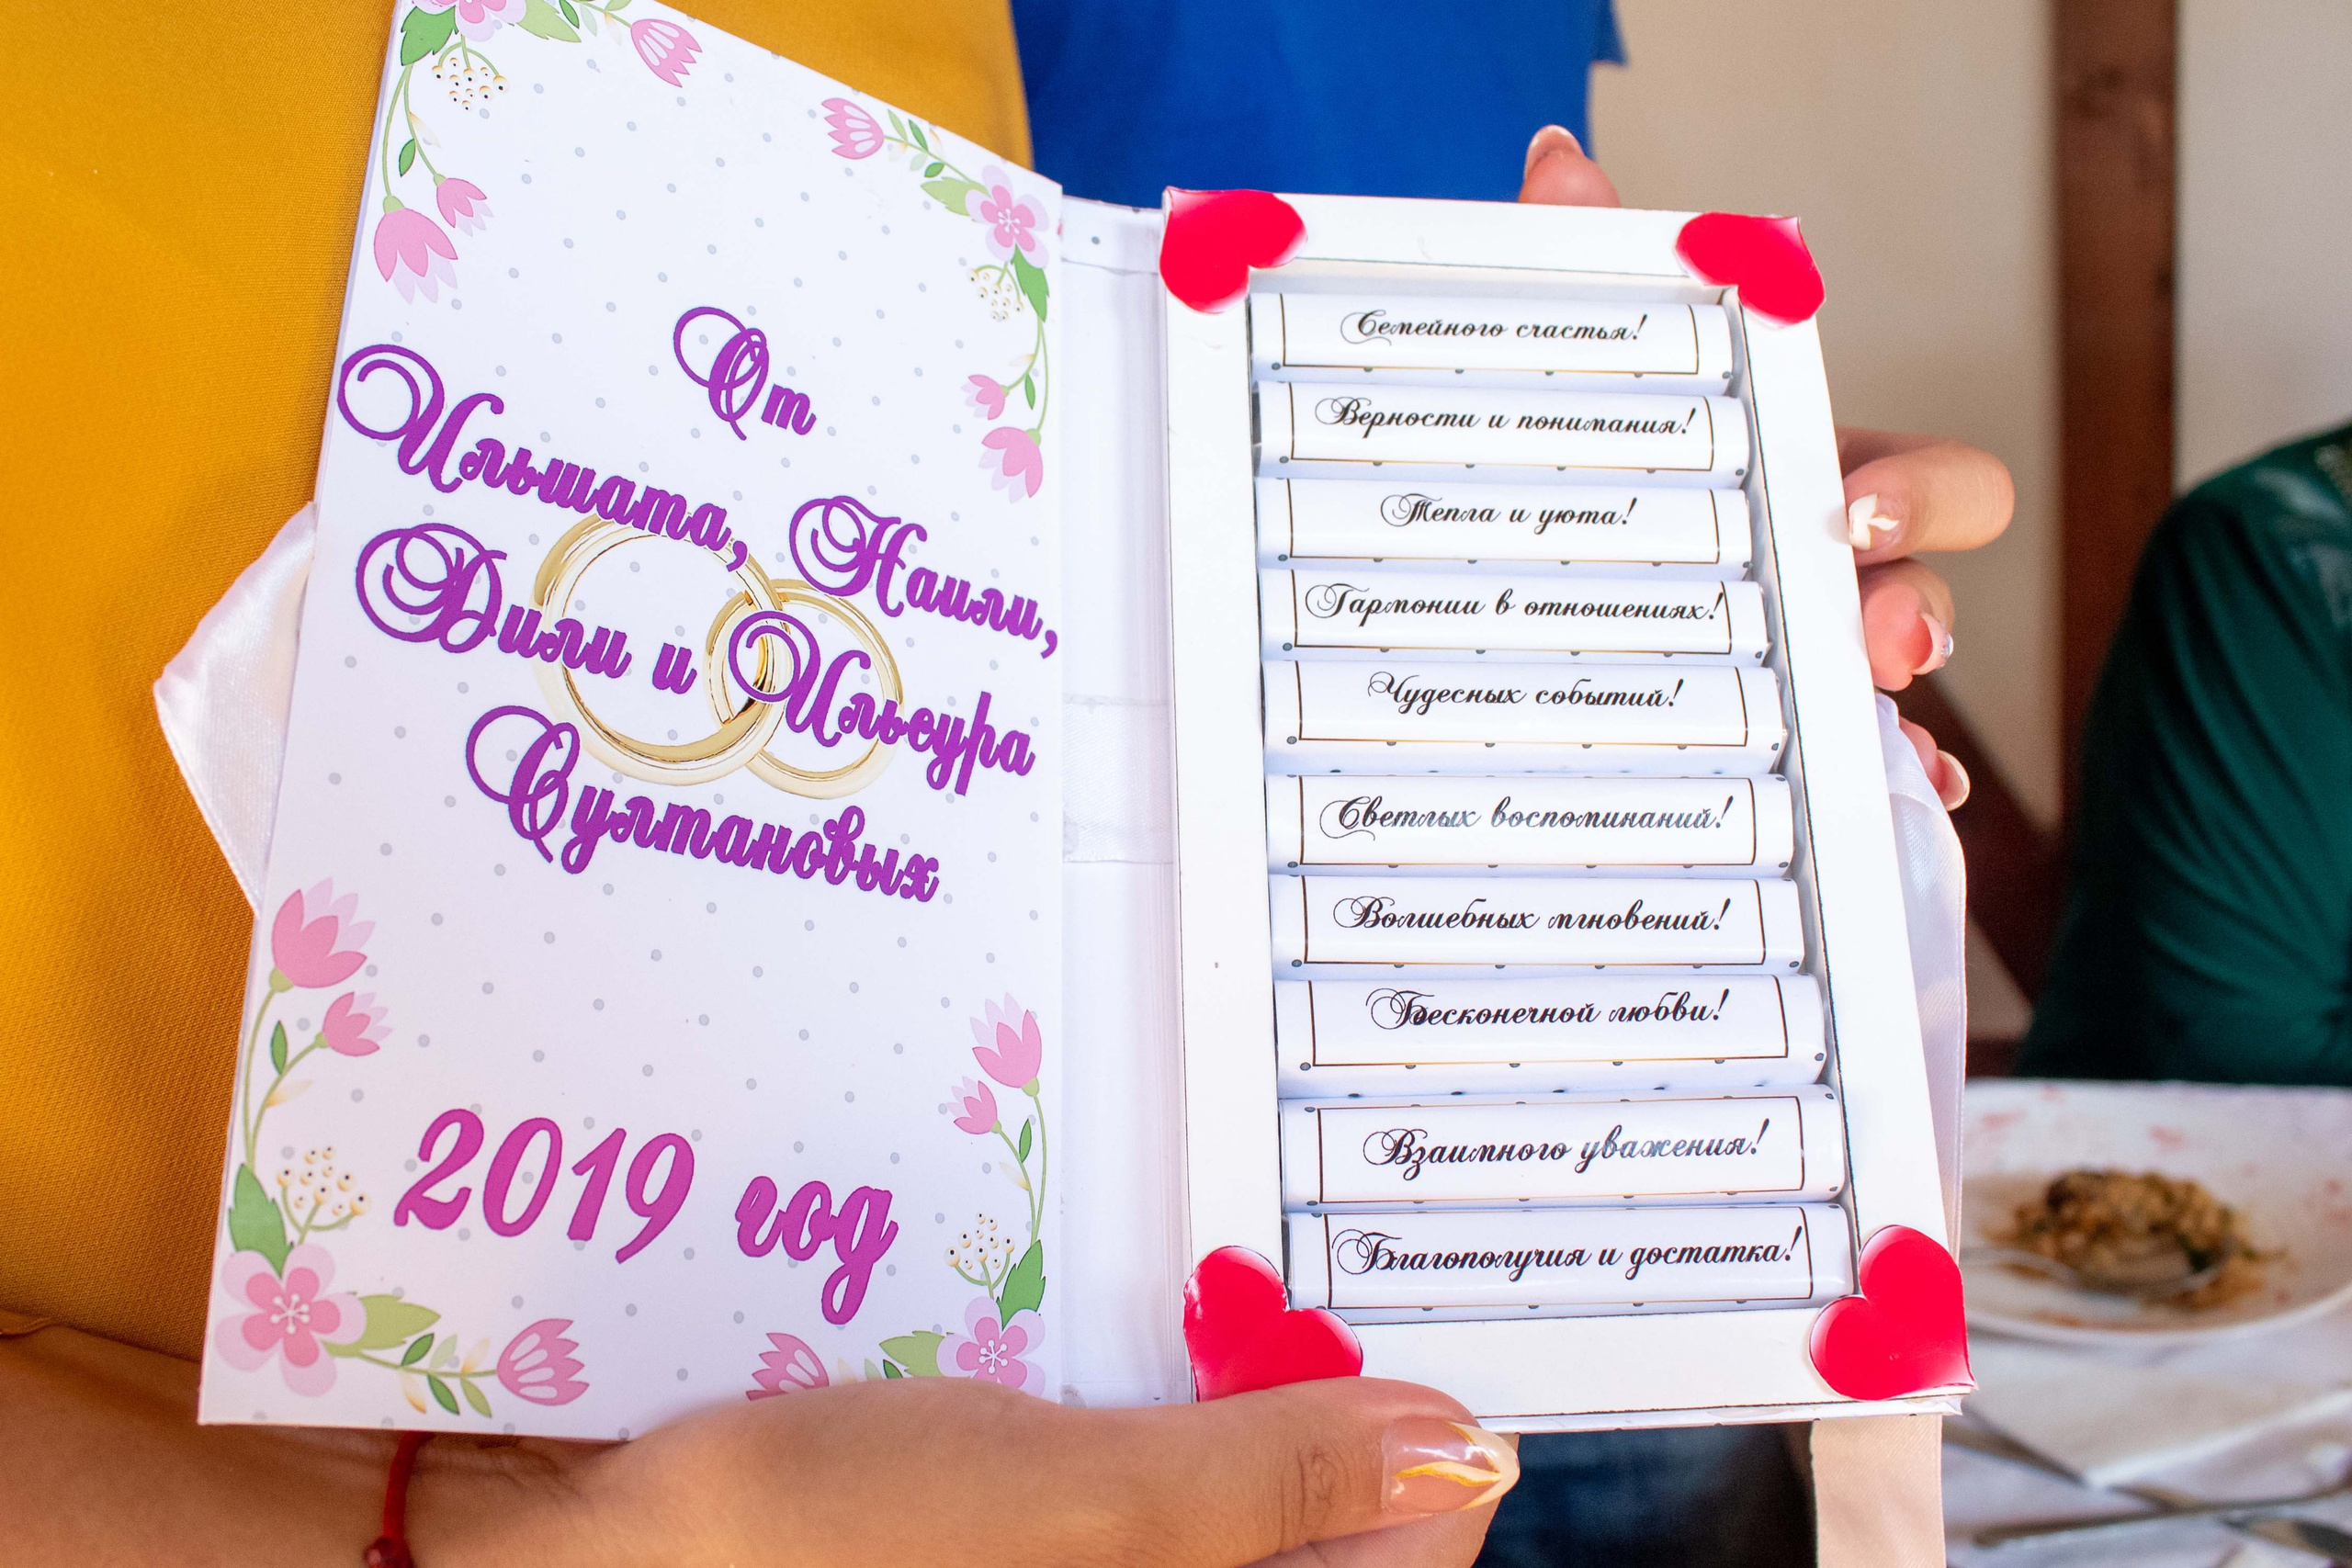 От
Ильшата, Наили,
Дили и Ильсура
Султановых
2019 год
Семейного счастья!
Верности и понимания!
Тепла и уюта!
Гармонии в отношениях!
Чудесных событий!
Светлых воспоминаний!
Волшебных мгновений!
Бесконечной любви!
Взаимного уважения!
Благополучия и достатка!